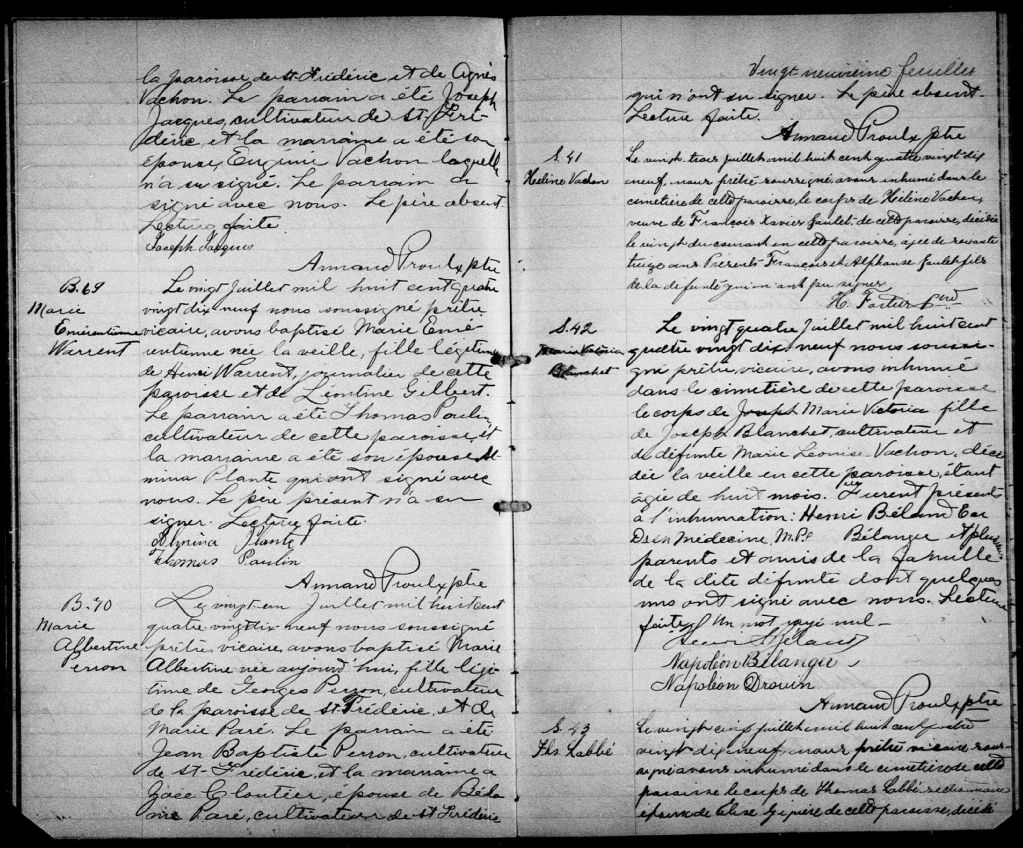 la paroisse de St. Frédéric et de Agnès
Vachon. Le parrain a été Joseph
Jacques, cultivateur de St. Fré-
déric, et la marraine a été son
épouse, Eugénie Vachon laquelle
n'a su signé. Le parrain a
signé avec nous. Le père absent
Lecture faite.
Joseph Jacques
Armand Proulx ptre
B. 69
Marie
Emérentienne
Warrent
Le vingt Juillet mil huit cent quatre
vingt dix neuf nous soussigné prêtre
vicaire, avons baptisé Marie Emé-
rentienne née la veille, fille légitime
de Henri Warrent, journalier de cette
paroisse et de Léontine Gilbert.
Le parrain a été Thomas Poulin,
cultivateur de cette paroisse, et
la marraine a été son épouse Al-
mina Plante qui ont signé avec
nous. Le père présent n'a su
signer. Lecture faite.
Almina Plante
Thomas Poulin
Armand Proulx ptre
B. 70
Marie
Albertine
Perron
Le vingt un Juillet mil huit cent
quatre vingt dix-neuf nous soussigné
prêtre, vicaire, avons baptisé Marie
Albertine née aujourd'hui, fille légi-
time de Georges Perron, cultivateur
de la paroisse de St. Frédéric, et de
Marie Paré. Le parrain a été
Jean Baptiste Perron, cultivateur
de St. Frédéric, et la marraine a
Zoée Cloutier, épouse de Béla
nie Paré, cultivateur de St Frédéric
Vingt neuvième feuillet
qui n'ont su signer. Le père absent.
Lecture faite.
Armand Proulx ptre
S. 41
Hélène Vachon
Le vingt trois juillet mil huit cent quatre vingt dix
neuf, nous prêtre soussigné, avons inhumé dans le
cimetière de cette paroisse, le corps de Hélène Vachon,
veuve de François Xavier Goulet de cette paroisse, décédée
le vingt du courant en cette paroisse, agée de soixante
treize ans Présents François et Alphonse Goulet fils
de la défunte qui n'ont pu signer
H. Fortier Curé
S. 42
Marie Victoria
Blanchet
Le vingt quatre Juillet mil huit cent
quatre vingt dix neuf nous soussi-
gné prêtre, vicaire, avons inhumé
dans le cimetière de cette paroisse
le corps de Joseph Marie Victoria fille
de Joseph Blanchet, cultivateur et
de défunte Marie Louise Vachon, décé-
dée la veille en cette paroisse, étant
âgée de huit mois. Furent présents
à l'inhumation: Henri Béland Ecr
Dr en Médecine, M.P.P. Bélanger et plusieurs
parents et amis de la famille
de la dite défunte dont quelques
uns ont signé avec nous. Lecture
faite. Un mot rayé nul-
Henri S. Béland
Napoléon Bélanger
Napoléon Drouin
Armand Proulx ptre
S. 43
Ths. Labbé
Le vingt cinq juillet mil huit cent quatre
vingt dix neuf, nous prêtre vicaire sous-
signé avons inhumé dans le cimetière de cette
paroisse le corps de Thomas Labbé
époux de Elise Giguère de cette paroisse, décédé